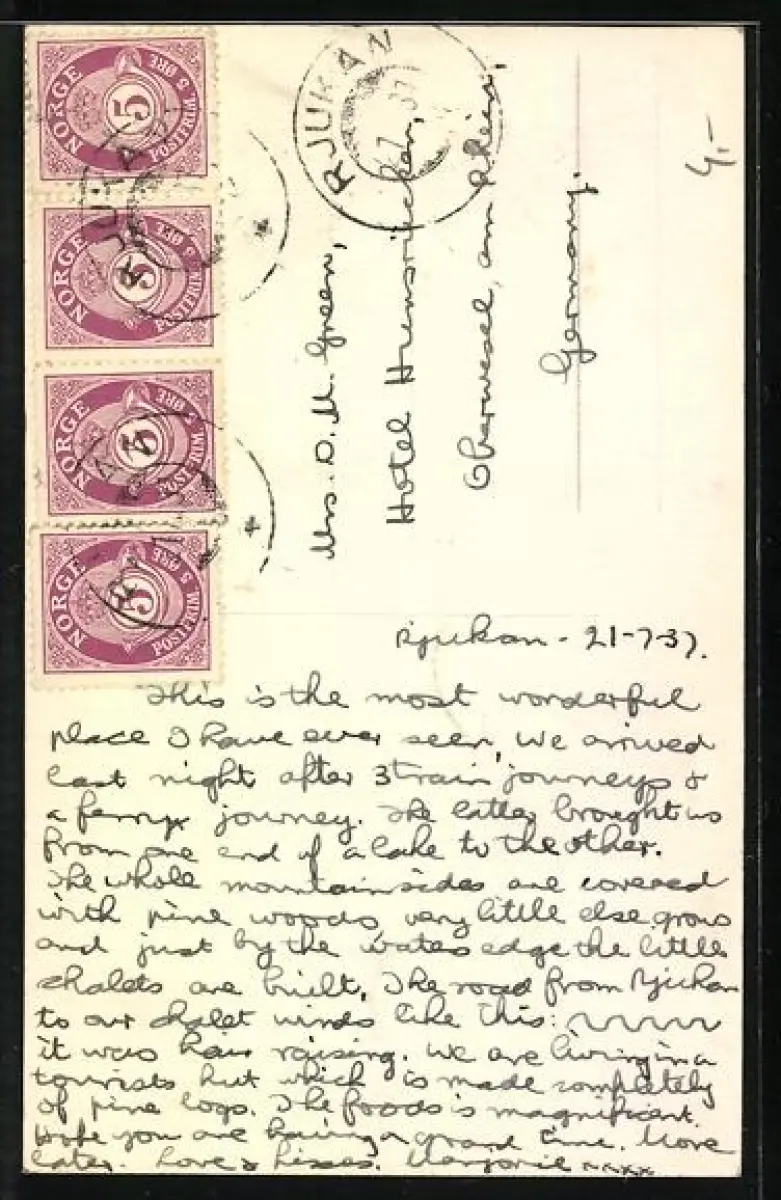 NORGE 5 POSTFRIM. 5 ØRE
NORGE 5 POSTFRIM. 5 ØRE
NORGE 5 POSTFRIM. 5 ØRE
NORGE 5 POSTFRIM. 5 ØRE
RJUKAN
37
4,-
Mrs. D. M. Green,
Hotel Hunsrücken,
Oberwesel, am Rhein,
Germany.
Rjukan - 21-7-37.
This is the most wonderful
place I have ever seen, we arrived
last night after 3 train journeys &
a ferry journey. The latter brought us
from one end of a lake to the other.
The whole mountain sides are covered
with pine woods, very little else grows
and just by the waters edge the little
chalets are built. The road from Rjukan
to our chalet winds like this:
it was hair raising. We are living in a
tourists hut which is made completely
of pine logs. The foods is magnificent.
Hope you are having a grand time. More
later. Love & kisses. Marjorie xxxx